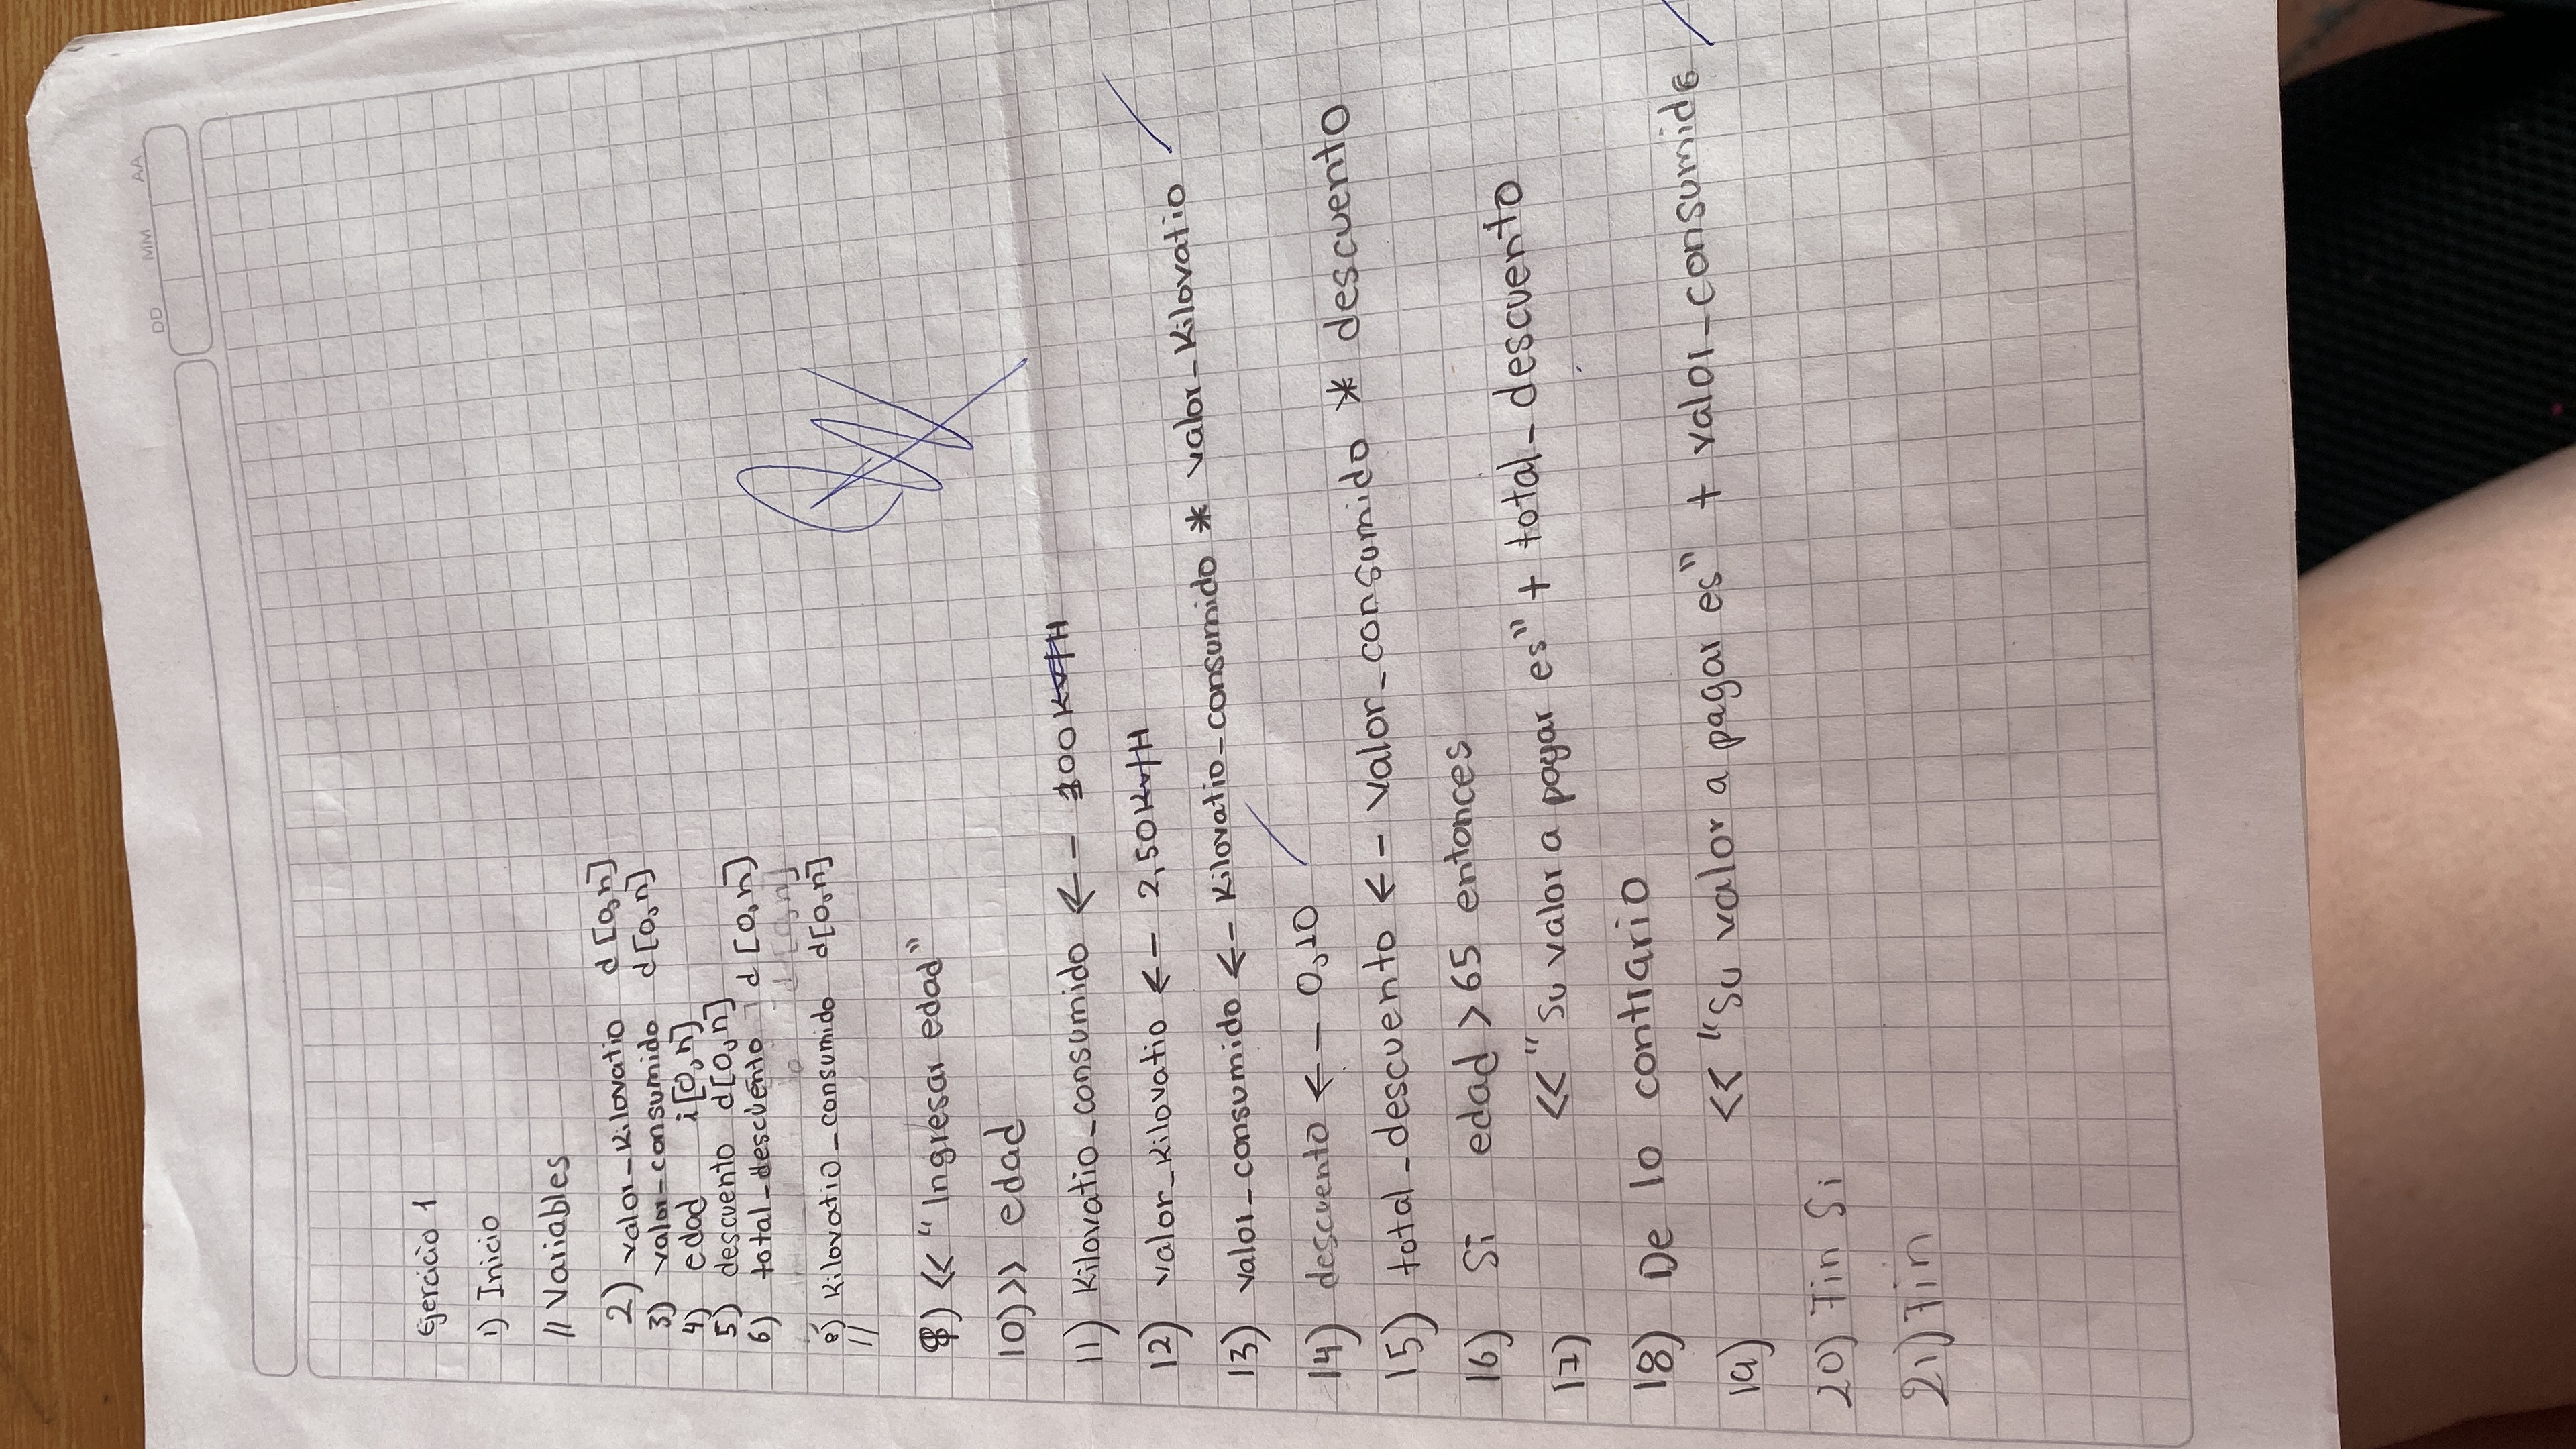 DD MM AA
Ejercicio 1
1) Inicio
// Variables
2) valor_Kilovatio d [0,n]
3) valor_consumido d[0,n]
4) edad i[0,n]
5) descuento d[0,n]
6) total_descuento d [0,n]
d[0,n]
8) Kilovatio_consumido d[0,n]
//
9) << "Ingresar edad"
10) >> edad
11) Kilovatio_consumido <- 100 Kv/H
12) valor_Kilovatio <- 2,50 Kv/H
13) valor_consumido <- Kilovatio_consumido * valor_Kilovatio
14) descuento <- 0,10
15) total_descuento <- valor_consumido * descuento
16) Si edad > 65 entonces
17) << "Su valor a pagar es" + total_descuento
18) De lo contrario
19) << "Su valor a pagar es" + valor_consumido
20) Fin Si
21) Fin